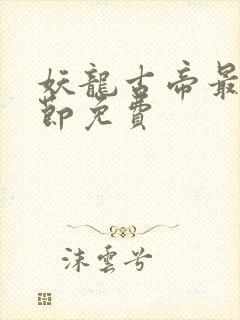 妖龍古帝最
節免費
沫雲兮